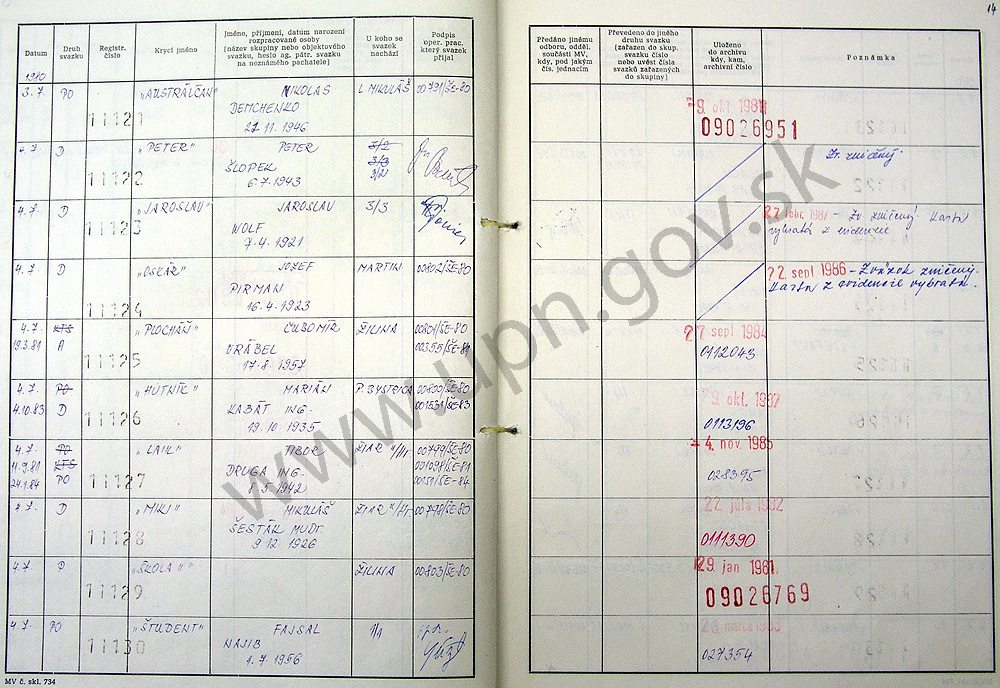 14
Datum
Druh svazku
Registr. číslo
Krycí jméno
Jméno, příjmení, datum narození
rozpracované osoby
(název skupiny nebo objektového
svazku, heslo ag. pátr. svazku
na neznámého pachatele)
U koho se
svazek
nachází
Podpis
oper. prac.
který svazek
přijal
Předáno jinému
odboru, odděl.
součásti MV,
kdy, pod jakým
čís. jednacím
Převedeno do jiného
druhu svazku
(zařazen do skup.
svazku číslo
nebo uvést čísla
svazků zařazených
do skupiny)
Uloženo
do archivu
kdy, kam,
archivní číslo
Poznámka
1980
3.7. PO 11121 "AUSTRÁLČAN" NIKOLAS L. MIKULÁŠ 00791/ŠE-80
DEMCHENKO
27.11.1946
9. okt. 1981
09026951
D 11122 "PETER" PETER 3/2
ŠLOPEK 3/3
6.7.1943 3/2
Zv. zničený
4.7. D 11123 "JAROSLAV" JAROSLAV 3/3
WOLF
7.4.1921
27 febr. 1987 - Zv zničený Karta
vybratá z evidencie
4.7. D 11124 "OSKÁR" JOZEF MARTIN 00802/ŠE-80
PIRMAN
16.4.1923
22. sept 1986 - Zväzok zničený.
Karta z evidencie vybratá.
4.7 KTS 11125 "PLOCHÁŇ" ĽUBOMÍR ŽILINA 00801/ŠE-80
19.3.81 A VRÁBEL 00355/ŠE-81
17.8.1957
27 sept 1984
0112043
4.7. PO 11126 "HUTNÍK" MARIÁN P. BYSTRICA 00800/ŠE-80
4.10.83 D KABÁT ING. 001531/ŠE-83
19.10.1935
9. okt. 1987
0113196
4.7. PO 11127 TIBOR ŽIAR n/Hr 00799/ŠE-80
11.9.81 KTS DRUGA ING. 001098/ŠE-81
24.1.84 PO 00151/ŠE-84
1942
4. nov. 1985
028395
4.7. D 11128 "MIKI" MIKULÁŠ ŽIAR n/Hr 00798/ŠE-80
ŠESTÁK MUDr.
9.12 1926
22. júla 1982
0111390
4.7 D 11129 "ŠKOLA II" ŽILINA 00803/ŠE-80
29. jan 1981
09026769
4.7. PO 11130 "ŠTUDENT" FAJSAL 1/1
NAJIB
1.7.1956
027354
MV č. skl. 734
www.upn.gov.sk